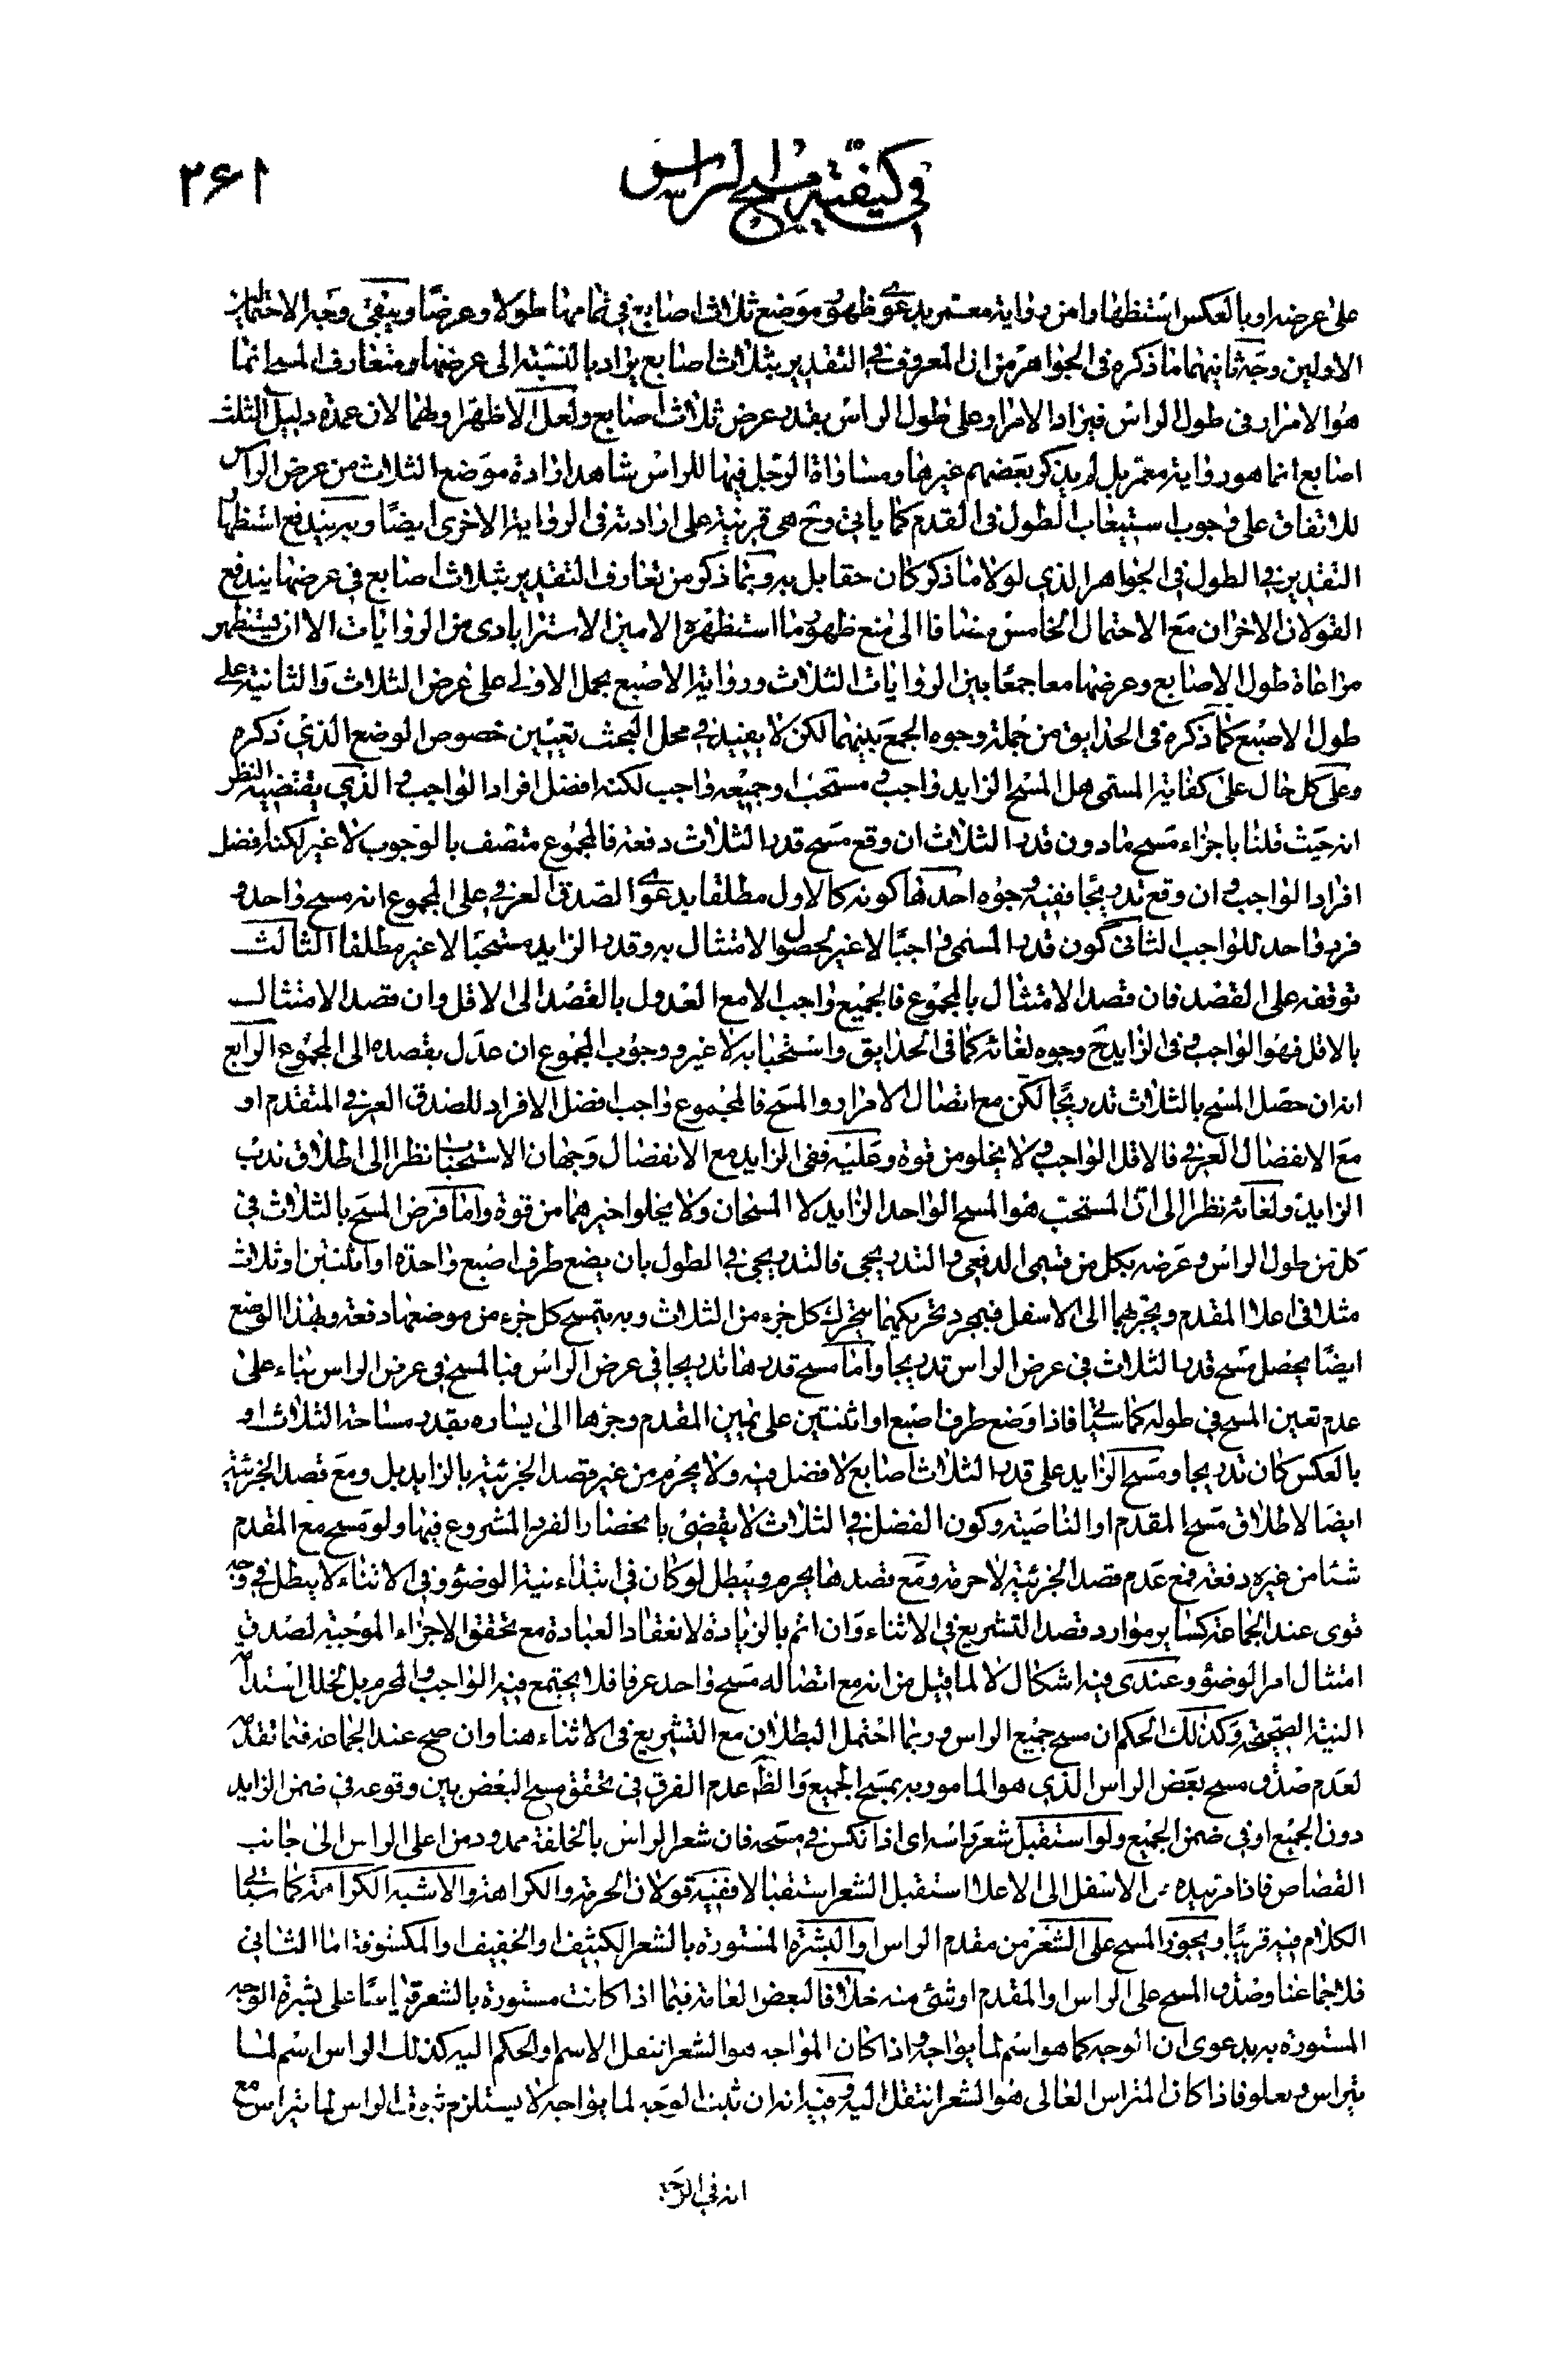 في كيفية مسح الراس
٢۶١
على عرضه او بالعكس استظهارا من رواية معتمر بدعوى ظهور موضع ثلاث اصابع في تمامها طولا وعرضا ويبقى وجه الاحتمالين
الاولين وجه ثانيهما ما ذكره في الجواهر من ان المعروف في التقدير بثلاث اصابع يراد بالنسبة الى عرضها ومتعارف المسح انما
هو الامرار في طول الراس فيراد الامرار على طول الراس بقدر عرض ثلاث اصابع ولعل الاظهر اولهما لان عمدة دليل الثلث
اصابع انما هو رواية معمر بل لم يذكر بعضهم غيرها ومساواة الرجل فيها للراس شاهد ارادة موضع الثلاث من عرض الراس
للاتفاق على وجوب استيعاب الطول في القدم كما ياتي وح هي قرينة على ارادته في الرواية الاخرى ايضا وبه يندفع استظهار
التقدير في الطول في الجواهر الذي لولا ما ذكر كان حقا بل به وبما ذكر من تعارف التقدير بثلاث اصابع في عرضها يندفع
القولان الاخران مع الاحتمال الخامس مضافا الى منع ظهور ما استظهره الامين الاسترابادي من الروايات الا ان يستظهر
مراعاة طول الاصابع وعرضها معا جمعا بين الروايات الثلاث ورواية الاصبع بحمل الاولى على عرض الثلاث والثانية على
طول الاصبع كما ذكره في الحدايق من جملة وجوه الجمع بينهما لكن لا يفيد في محل البحث تعيين خصوص الوضع الذي ذكره
وعلى كل حال على كفاية المسمى هل المسح الزايد واجب او مستحب او جميعه واجب لكنه افضل افراد الواجب والذي يقتضيه النظر
انه حيث قلنا باجزاء مسح ما دون قدر الثلاث ان وقع مسح قدر الثلاث دفعة فالمجموع متصف بالوجوب لا غير لكنه افضل
افراد الواجب وان وقع تدريجا ففيه وجوه احدها كونه كالاول مطلقا بدعوى الصدق العرفي على المجموع انه مسح واحد و
فرد واحد للواجب الثاني كون قدر المسمى واجبا لا غير لحصول الامتثال به وقدر الزايد مستحبا لا غير مطلقا الثالث
توقفه على القصد فان قصد الامتثال بالمجموع فالجميع واجب الا مع العدول بالقصد الى الاقل وان قصد الامتثال
بالاقل فهو الواجب وفي الزايد ح وجوه لغائه كما في الحدايق واستحبابه لا غير ووجوب المجموع ان عدل بقصده الى المجموع الرابع
انه ان حصل المسح بالثلاث تدريجا لكن مع اتصال الامرار والمسح فالمجموع واجب افضل الافراد للصدق العرفي المتقدم او
مع الانفصال العرفي فالاقل الواجب ولا يخلو من قوة وعليه ففي الزايد مع الانفصال وجهان الاستحباب نظرا الى اطلاق ندب
الزايد ولغائه نظرا الى ان المستحب هو المسح الواحد الزايد لا المسحان ولا يخلو اخيرهما من قوة واما فرض المسح بالثلاث في
كل من طول الراس وعرضه بكل من قسمي الدفعي والتدريجي فالتدريجي في الطول بان يضع طرف اصبع واحدة او اثنتين او ثلاث
مثلا في اعلا المقدم ويجرهما الى الاسفل فبمجرد تحريكهما يتحرك كل جزء من الثلاث وبه يتمسح كل جزء من موضعها دفعة وبهذا الوضع
ايضا يحصل مسح قدر الثلاث في عرض الراس تدريجا واما مسح قدرها تدريجا في عرض الراس فبالمسح في عرض الراس بناء على
عدم تعين المسح في طوله كما سياتي فاذا وضع طرف اصبع او اثنتين على يمين المقدم وجرها الى يساره بقدر مساحة الثلاث او
بالعكس كان تدريجا ومسح الزايد على قدر الثلاث اصابع لا فضل فيه ولا يحرم من غير قصد الجزئية بالزايد بل ومع قصد الجزئية
ايضا لاطلاق مسح المقدم او الناصية وكون الفضل في الثلاث لا يقضي بانحصار الفرد المشروع فيها ولو مسح مع المقدم
شئا من غيره دفعة فمع عدم قصد الجزئية لا حرمة ومع قصدها يحرم ويبطل لو كان في ابتداء نية الوضؤ وفي الاثناء لا يبطل في وجه
قوى عند الجماعة كساير موارد قصد التشريع في الاثناء وان اثم بالزيادة لانعقاد العبادة مع تحقق الاجزاء الموجبة لصدق
امتثال امر الوضؤ وعندى فيه اشكال لا لما قيل من انه مع اتصاله مسح واحد عرفا فلا يجتمع فيه الواجب والمحرم بل لخلل استدامة
النية الصحيحة وكذلك الحكم ان مسح جميع الراس وربما احتمل البطلان مع التشريع في الاثناء هنا وان صح عند الجماعة فيما تقدم
لعدم صدق مسح بعض الراس الذي هو المامور به بمسح الجميع والظ عدم الفرق في تحقق مسح البعض بين وقوعه في ضمن الزايد
دون الجميع او في ضمن الجميع ولو استقبل شعر راسه اى اذا نكس في مسحه فان شعر الراس بالخلقة ممدود من اعلى الراس الى جانب
القصاص فاذا مر بيده من الاسفل الى الاعلا استقبل الشعر استقبالا ففيه قولان الحرمة والكراهة والاشبه الكراهة كما سياتي
الكلام فيه قريبا ويجوز المسح على الشعر من مقدم الراس او البشرة المستورة بالشعر الكثيف او الخفيف او المكشوفة اما الثاني
فلاجماعنا وصدق المسح على الراس والمقدم او شئ منه خلافا لبعض العامة فيما اذا كانت مستورة بالشعر قياسا على بشرة الوجه
المستورة به بدعوى ان الوجه كما هو اسم لما يواجه واذا كان المواجه هو الشعر انتقل الاسم والحكم اليه كذلك الراس اسم لما
يتراس ويعلو فاذا كان المتراس العالى هو الشعر انتقل اليه وفيه انه ان ثبت الوجه لما يواجه لا يستلزم ثبوت الراس لما يتراس مع
انه في الوجه